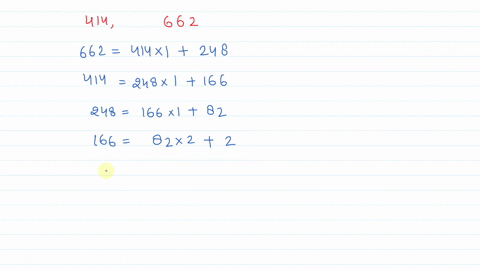 414, 662
662 = 414 × 1 + 248
414 = 248 × 1 + 166
248 = 166 × 1 + 82
166 = 82 × 2 + 2